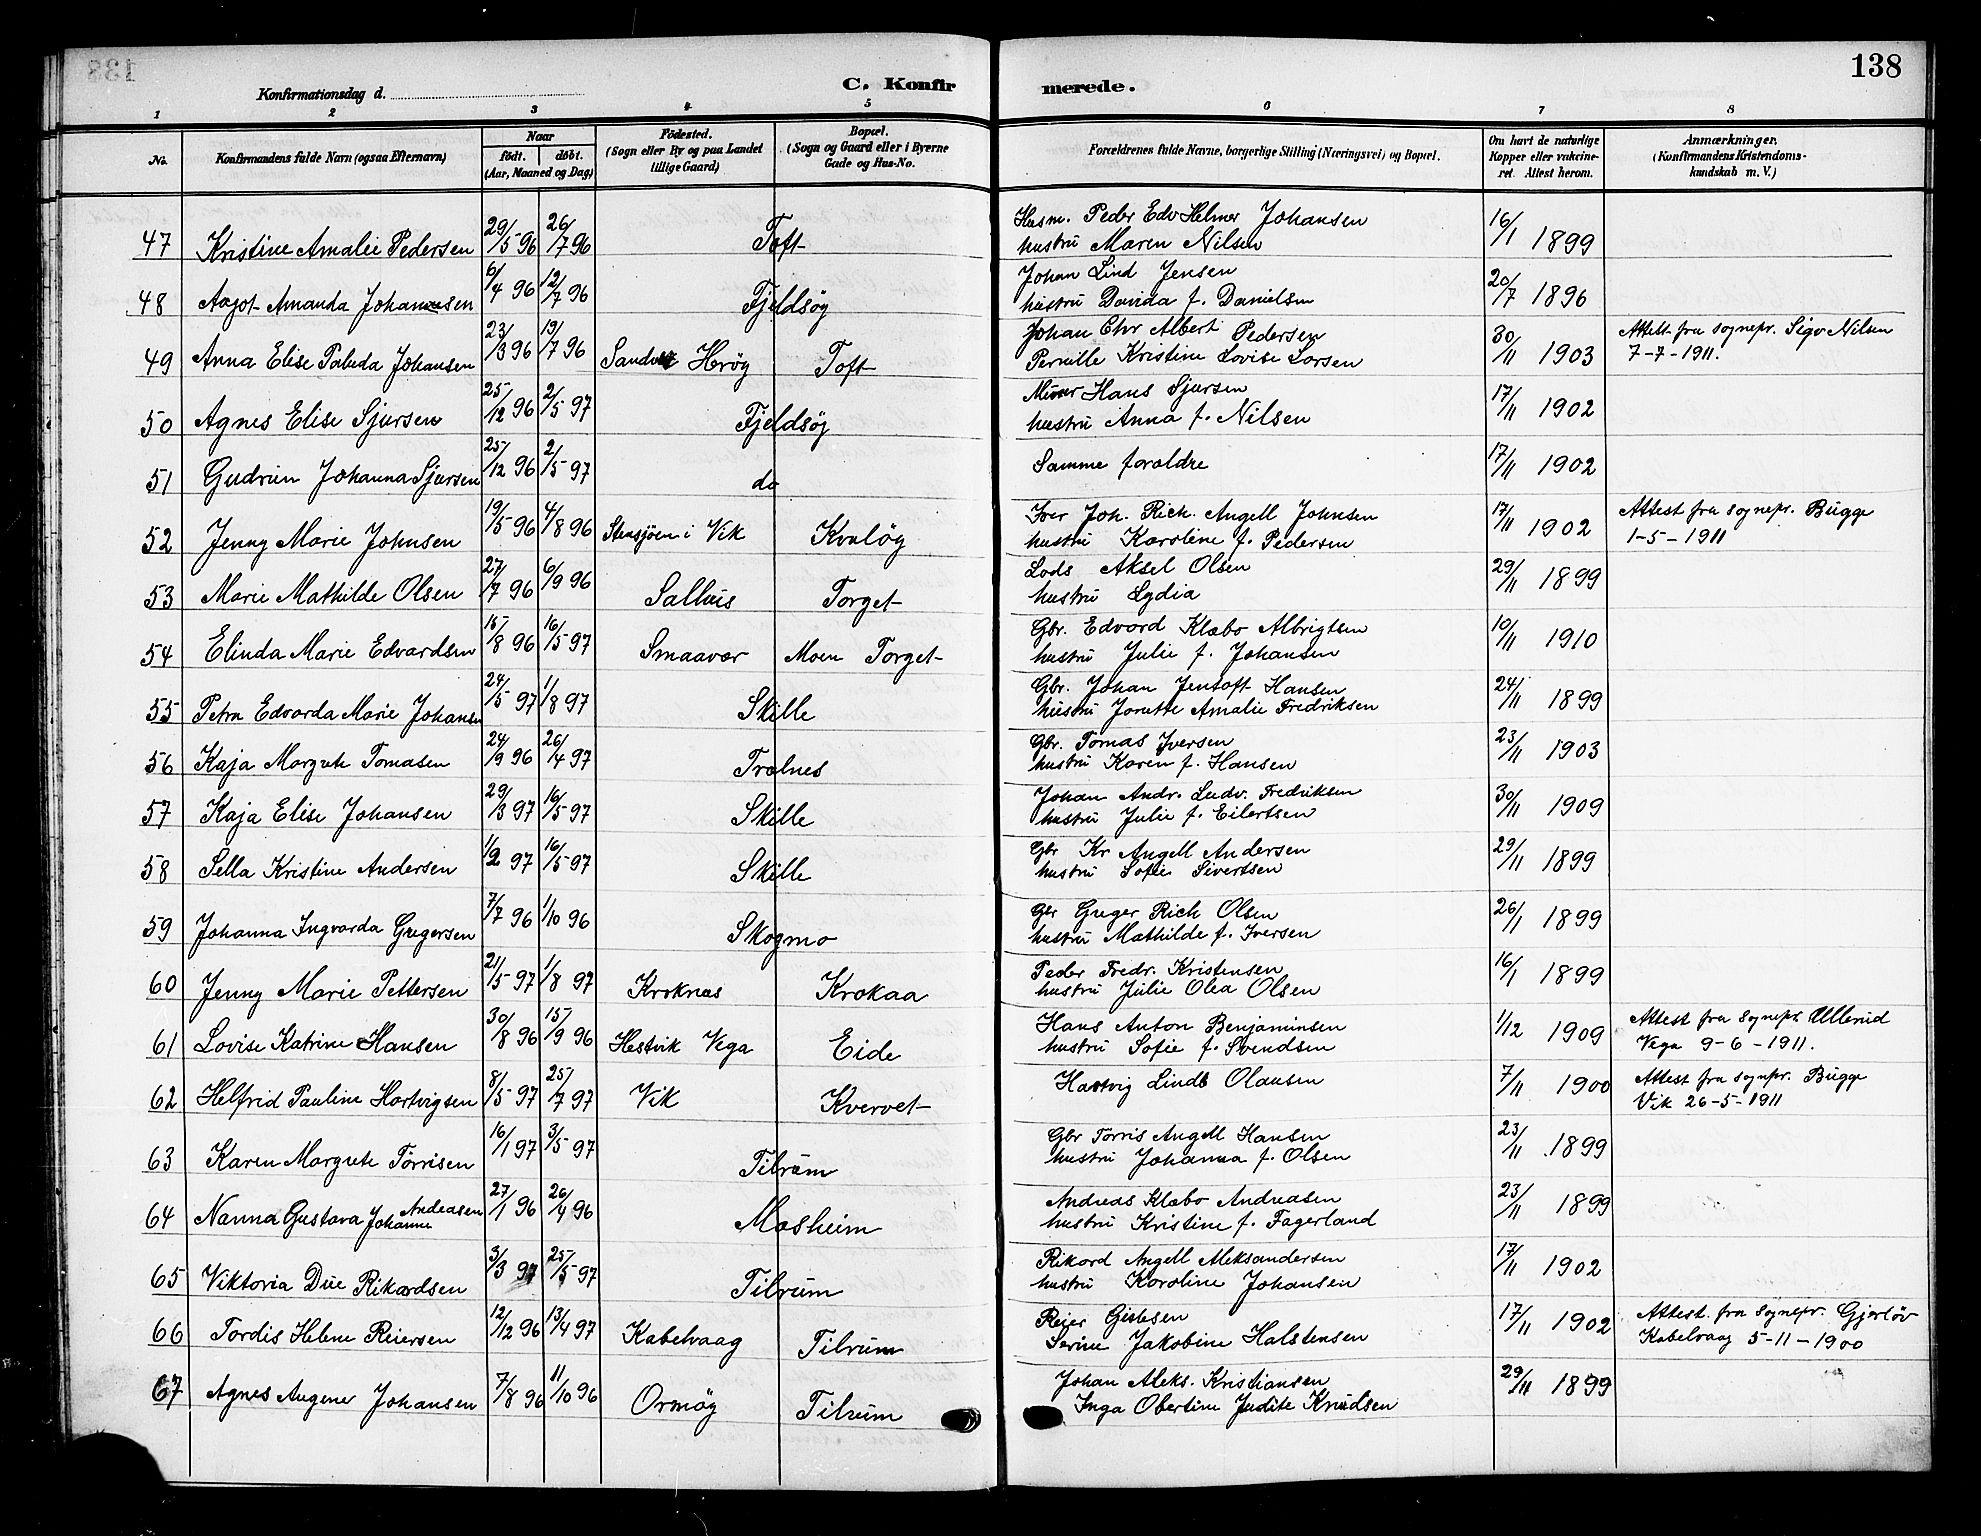 138
Konfirmationsdag d.
C. Konfirmerede.
1 2 3 4 5 6 7 8
No. Konfirmandens fulde Navn (ogsaa Efternavn) Naar født. døbt. (Aar, Maaned og Dag) Födested. (Sogn eller By og paa Landet tillige Gaard) Bopæl. (Sogn og Gaard eller i Byerne Gade og Hus-No. Forældrenes fulde Navne, borgerlige Stilling (Næringsvei) og Bopæl. Om havt de naturlige Kopper eller vakcineret. Attest herom. Anmærkninger. (Konfirmandens Kristendomskundskab m. V.)
47 Kristine Amalie Pedersen 29/5 96 26/7 96 Toft Husm. Peder Edv Helmer Johansen 16/1 1899
hustru Maren Nilsen
48 Aagot Amanda Johannesen 6/4 96 12/7 96 Fjeldsøy Johan Lind Jensen 20/7 1896
hustru Davida f. Danielsen
49 Anna Elise Johansen 23/3 96 19/7 96 Herøy Toft Johan Chr Albert Pedersen 30/11 1903 Attest fra sognepr. Sigv Nilsen
Pernille Kristine Lovise Larsen 7-7-1911.
50 Agnes Elise Sjursen 25/12 96 2/5 97 Fjeldsøy Hans Sjursen 17/11 1902
hustru Anna f. Nilsen
51 Gudrun Johanna Sjursen 25/12 96 2/5 97 do Samme foræld­re 17/11 1902
52 Jenny Marie Johnsen 19/5 96 4/8 96 Stensjøen i Vik Kvaløy Iver Joh. Rich. Angell Johnsen 17/11 1902 Attest fra sognepr. Bugge
hustru Karoline f. Pedersen 1-5-1911
53 Marie Mathilde Olsen 27/7 96 6/9 96 Salhus Torget Lods Aksel Olsen 29/11 1899
hustru Lydia
54 Elinda Marie Edvardsen 15/8 96 16/5 97 Smaavær Moen Torget Gbr. Edvard Klæbo Albrigtsen 10/11 1910
hustru Julie f. Johansen
55 Petra Edvarda Marie Johansen 24/5 97 1/8 97 Skille Gbr. Johan Jentoft Hansen 24/11 1899
hustru Jorutte Amalie Fredriksen
56 Kaja Margrete Tomasen 24/9 96 26/4 97 Trælnes Gbr. Tomas Iversen 23/11 1903
hustru Karen f. Hansen
57 Kaja Elise Johansen 29/3 97 16/5 97 Skille Johan Andr. Ludv. Fredriksen 30/11 1909
hustru Julie f. Eilertsen
58 Sella Kristine Andersen 1/2 97 16/5 97 Skille Gbr Kr Angell Andersen 29/11 1899
hustru Sofie Sivertsen
59 Johanna Ingvarda Gregersen 7/7 96 1/10 96 Skogmo Gbr Greger Rich Olsen 26/1 1899
hustru Mathilde f. Iversen
60 Jenny Marie Pettersen 21/5 97 1/8 97 Kroknes Krokaa Peder Fredr. Kristensen 16/1 1899
hustru Julie Olea Olsen
61 Lovise Katrine Hansen 30/8 96 15/9 96 Hestvik Vega Eide Hans Anton Benjaminsen 1/12 1909 Attest fra sognepr. Ullerud
hustru Sofie f. Svendsen Vega 9-6-1911.
62 Helfrid Pauline Hartvigsen 8/5 97 25/7 97 Vik Kvervet Hartvig Linds Olausen 7/11 1900 Attest fra sognepr. Bugge
Vik 26-5-1911
63 Karen Margrete Tørrisen 16/1 97 3/5 97 Tilrum Gbr Tørris Angell Hansen 23/11 1899
hustru Johanna f. Olsen
64 Nanna Gustava Johanne Andreasen 27/1 96 26/4 96 Mosheim Andreas Klæbo Andreasen 23/11 1899
hustru Kristine f. Fagerland
65 Viktoria Due Rikardsen 3/3 97 25/5 97 Tilrum Rikard Angell Aleksandersen 17/11 1902
hustru Karoline Johansen
66 Tordis Helene Reiersen 12/12 96 13/4 97 Kabelvaag Tilrum Reier Gislesen 17/11 1902 Attest fra sognepr. Gjerløv
Serine Jakobine Halstensen Kabelvaag 5-11-1900
67 Agnes Augene Johansen 7/8 96 11/10 96 Ormøy Tilrum Johan Aleks. Kristiansen 29/11 1899
Inga Obertine Judite Knudsen